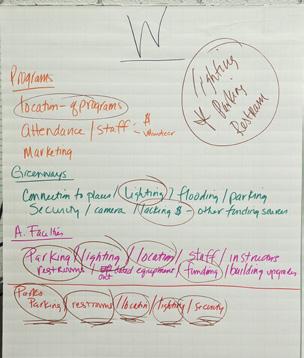 W
lighting
* Parking
Restroom
Programs
location of programs
Attendance / staff - $
- volunteer
Marketing
Greenways
Connection to places / Lighting / flooding / parking
Security / camera / lacking $ - other funding sources
A. Facilities
Parking / lighting / location / staff / instructors
restrooms / out dated equipment / funding / building upgrades
Parks
Parking / restrooms / location / lighting / security